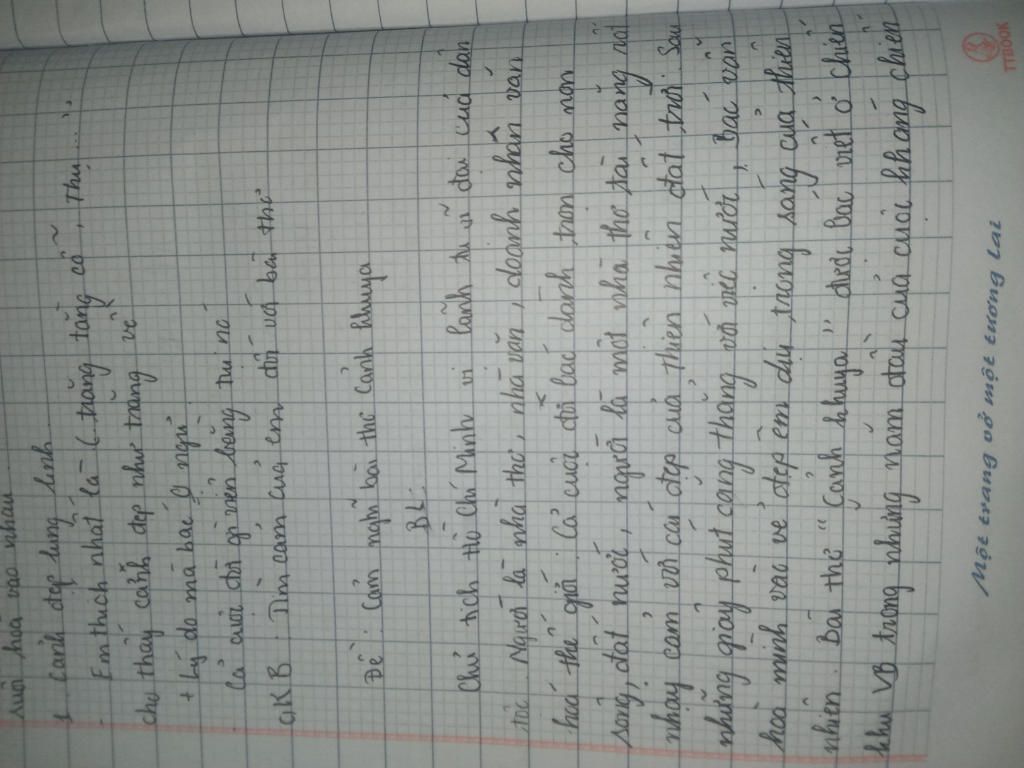 hoà vào nhau
1 cảnh đẹp lung linh
- Em thích nhất là (trăng tăng cổ, Thụ ...."
cho thấy cảnh đẹp như trăng vẽ
+ Lý do mà bác ngủ
cả cuộc đời
c, KB: Tìn cảm của em đối với bài thơ
Đề: Cản nghĩ bài thơ Cảnh khuya
BL:
Chủ tịch Hồ Chí Minh vị lãnh tụ vĩ đại của dân
tộc. Người là nhà thơ, nhà văn, doanh nhân văn
hoá thế giới. Cả cuộc đời bác dành trọn cho non
sông, đất nước, người là một nhà thơ tài năng với
nhạy cảm với cái đẹp của thiên nhiên đất trời. Sau
những giây phút căng thẳng với việc nước, Bác vẫn
hoà mình vào vẻ đẹp êm dịu, trong sáng của thiên
nhiên. Bài thơ "Cảnh khuya" được bác viết ở chiến
khu VB trong những năm đầu của cuộc kháng chiến
Một trang vở một tương lai
TTBOOK